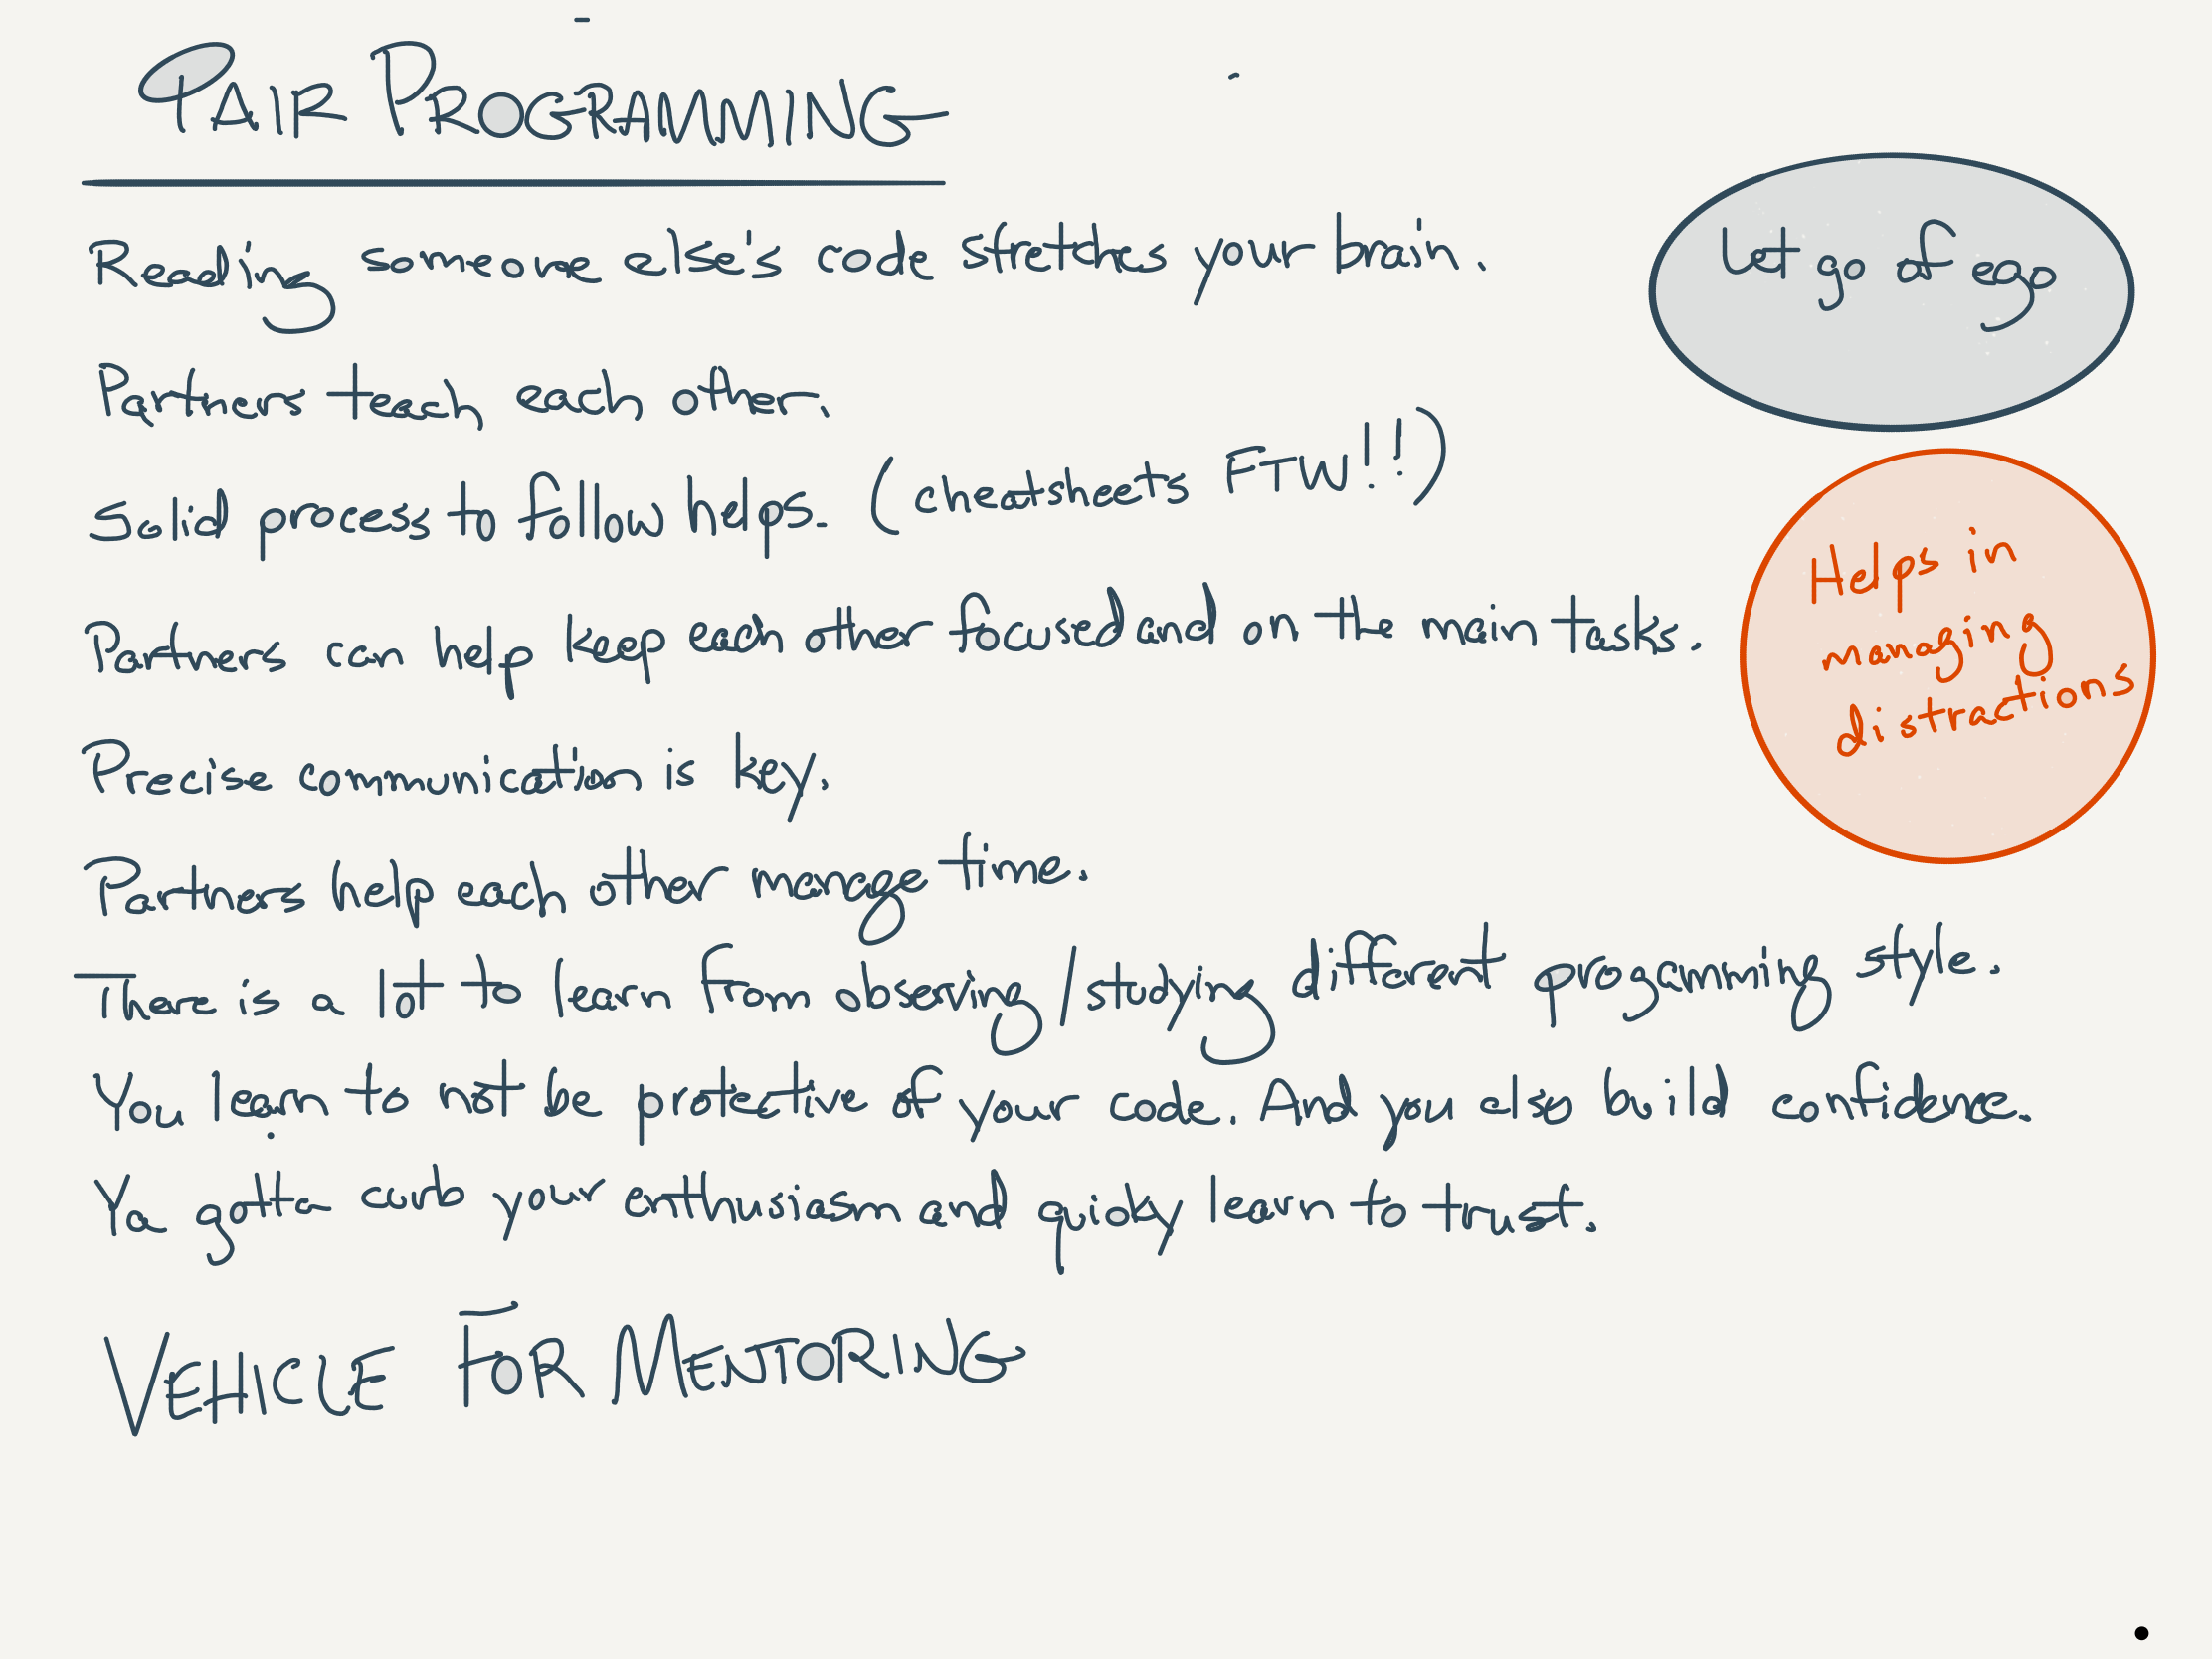 PAIR PROGRAMMING
Reading someone else's code stretches your brain.
Let go of ego
Partners teach each other.
Solid process to follow helps. (cheatsheets FTW!!)
Helps in
managing
distractions
Partners can help keep each other focused and on the main tasks.
Precise communication is key.
Partners help each other manage time.
There is a lot to learn from observing/studying different programming style.
You learn to not be protective of your code. And you also build confidence.
Ya gotta curb your enthusiasm and quickly learn to trust.
VEHICLE FOR MENTORING